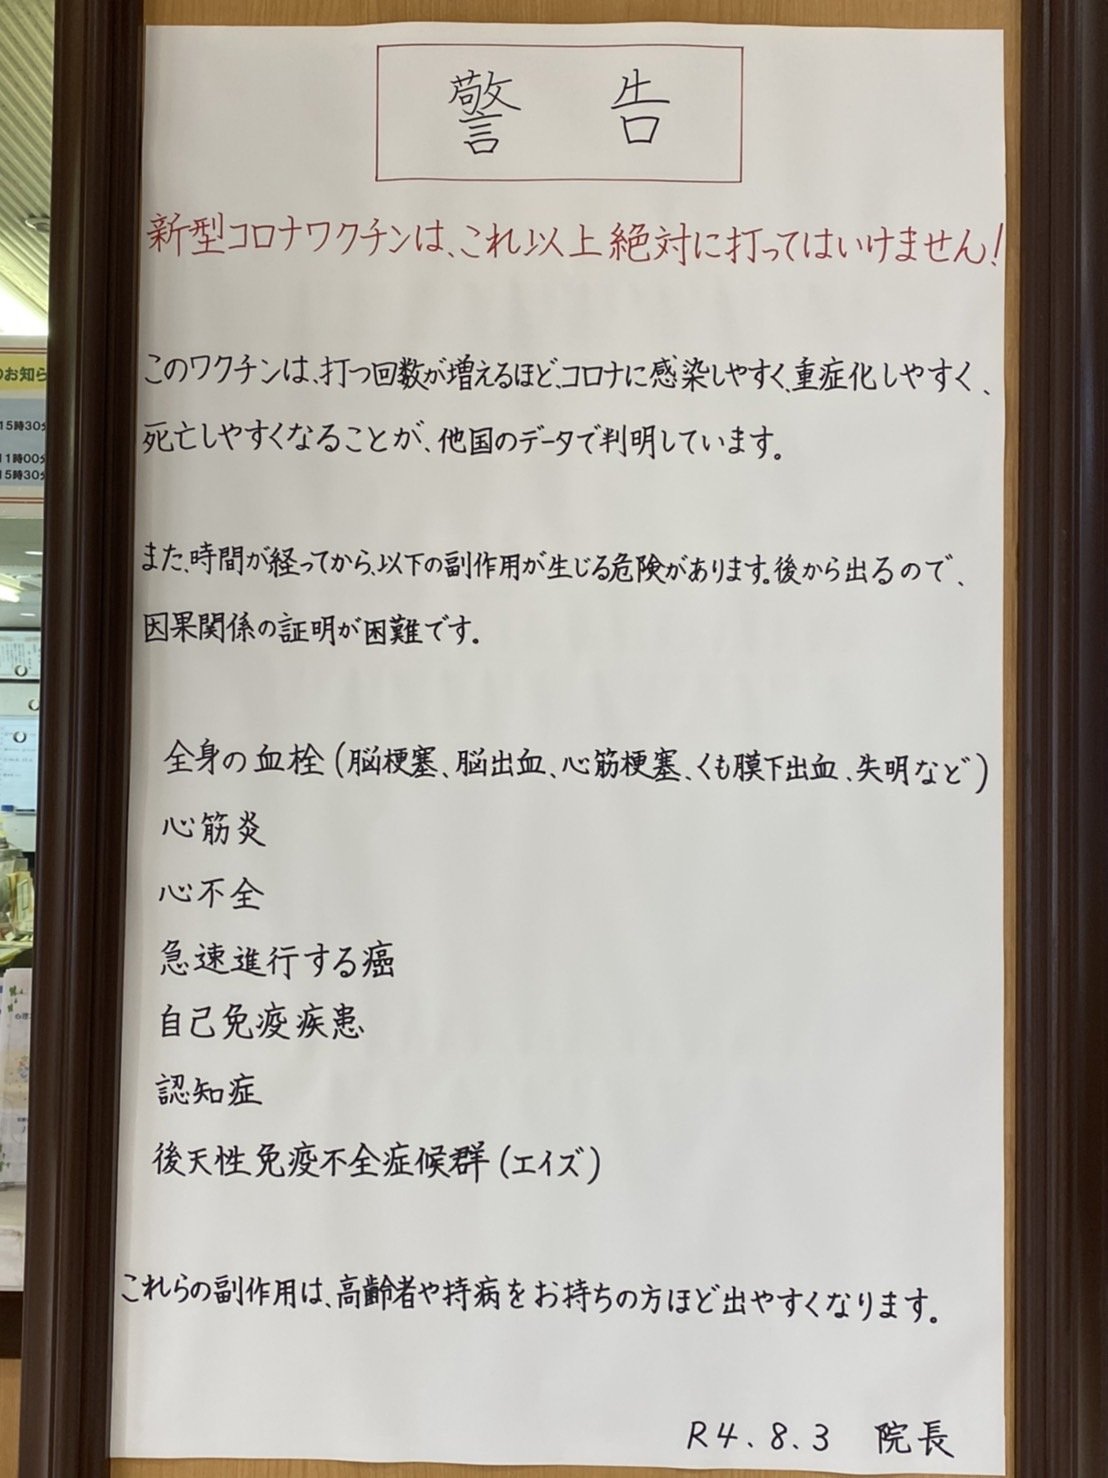 警 告
新型コロナワクチンは、これ以上絶対に打ってはいけません!
このワクチンは、打つ回数が増えるほど、コロナに感染しやすく、重症化しやすく、
死亡しやすくなることが、他国のデータで判明しています。
また、時間が経ってから、以下の副作用が生じる危険があります。後から出るので、
因果関係の証明が困難です。
全身の血栓(脳梗塞、脳出血、心筋梗塞、くも膜下出血、失明など)
心筋炎
心不全
急速進行する癌
自己免疫疾患
認知症
後天性免疫不全症候群(エイズ)
これらの副作用は、高齢者や持病をお持ちの方ほど出やすくなります。
R4.8.3 院長
のお知ら
15時30分
11時00分
15時30分